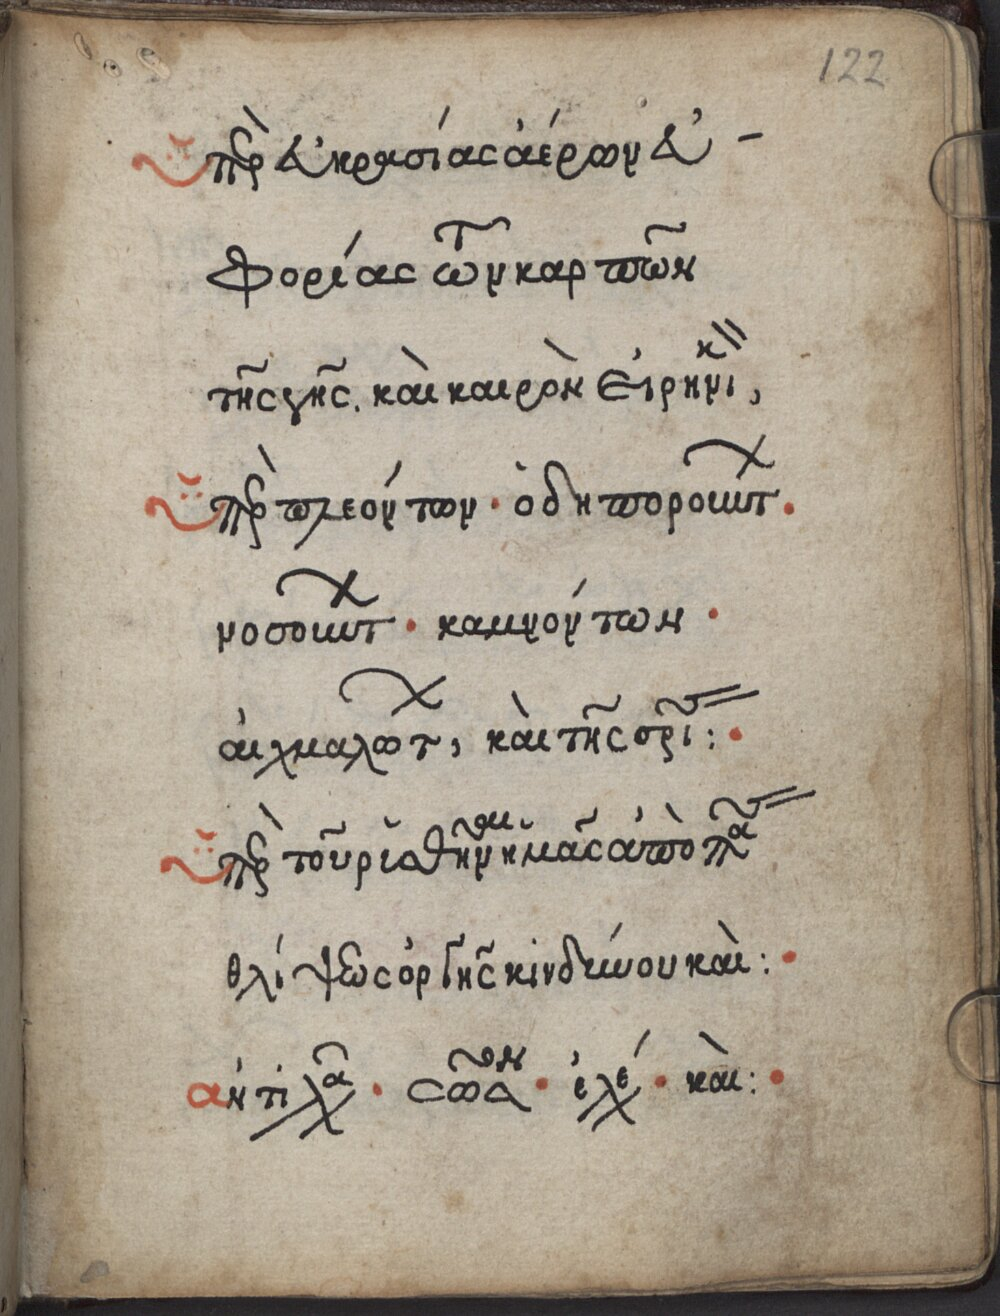 122
Ὑπὲρ εὐκρασίας ἀέρων εὐ-
φορίας τῶν καρπῶν
τῆς γῆς. καὶ καιρὸν εἰρηνικ,
Ὑπὲρ πλεόντων · ὁδηποροιωτ.
νοσοιωτ · καμνόντων ·
αἰχμαλωτ, καὶ τῆς σρι :·
Ὑπὲρ τοῦ ρισθῆναι ἡμᾶς ἀπὸ π
θλίψεως ὀργῆς κινδύνου καὶ :·
ἀντιλα · σῶσον · ἐλέ · καὶ :·